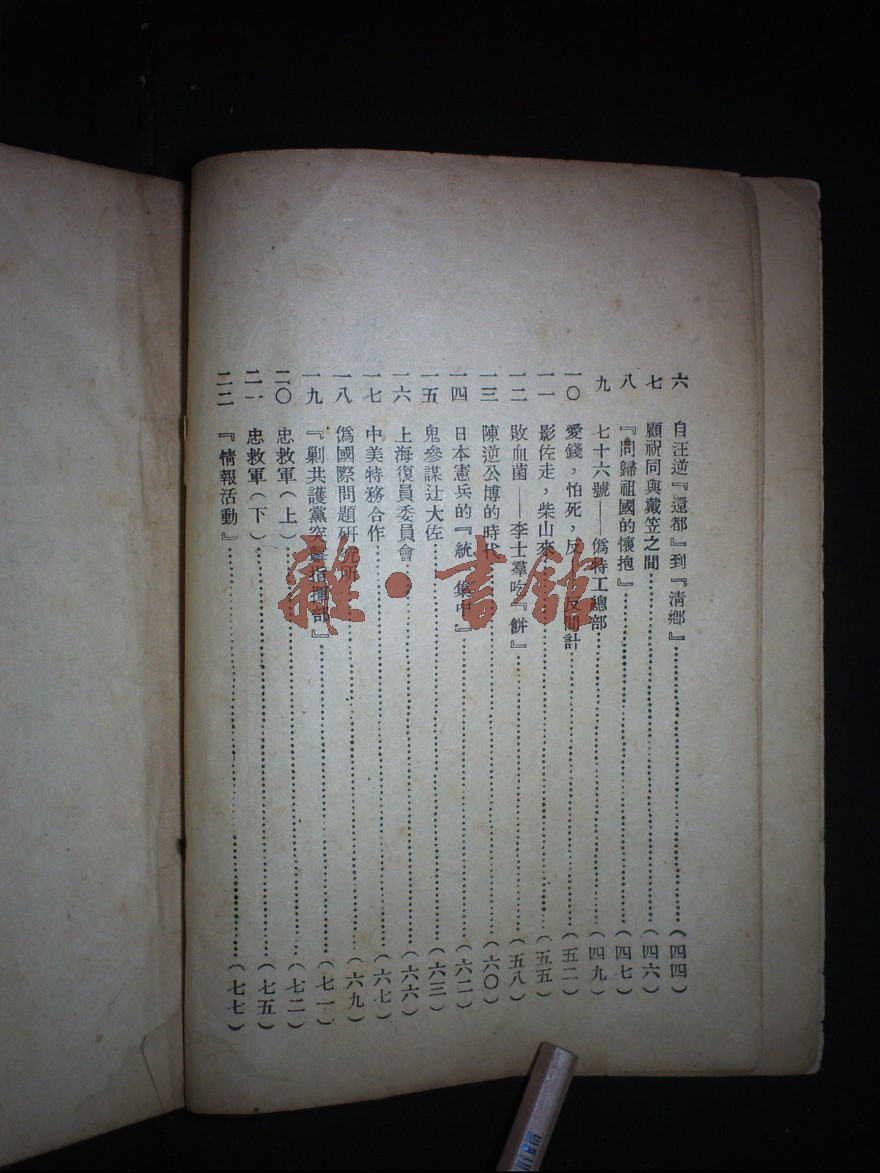 六 自汪逆『還都』到『淸鄕』(四四)
七 顧祝同與戴笠之間(四六)
八 『同歸祖國的懷抱』(四七)
九 七十六號——僞特工總部(四九)
一〇 愛錢，怕死，反 反間計(五二)
一一 影佐走，柴山來(五五)
一二 敗血菌——李士羣吃『餅』(五八)
一三 陳逆公博的時代(六〇)
一四 日本憲兵的『統一集中』(六二)
一五 鬼參謀辻大佐(六三)
一六 上海復員委員會(六六)
一七 中美特務合作(六七)
一八 僞國際問題硏究所(六九)
一九 『剿共護黨突擊指揮部』(七一)
二〇 忠救軍(上)(七二)
二一 忠救軍(下)(七五)
二二 『情報活動』(七七)
雜·書館